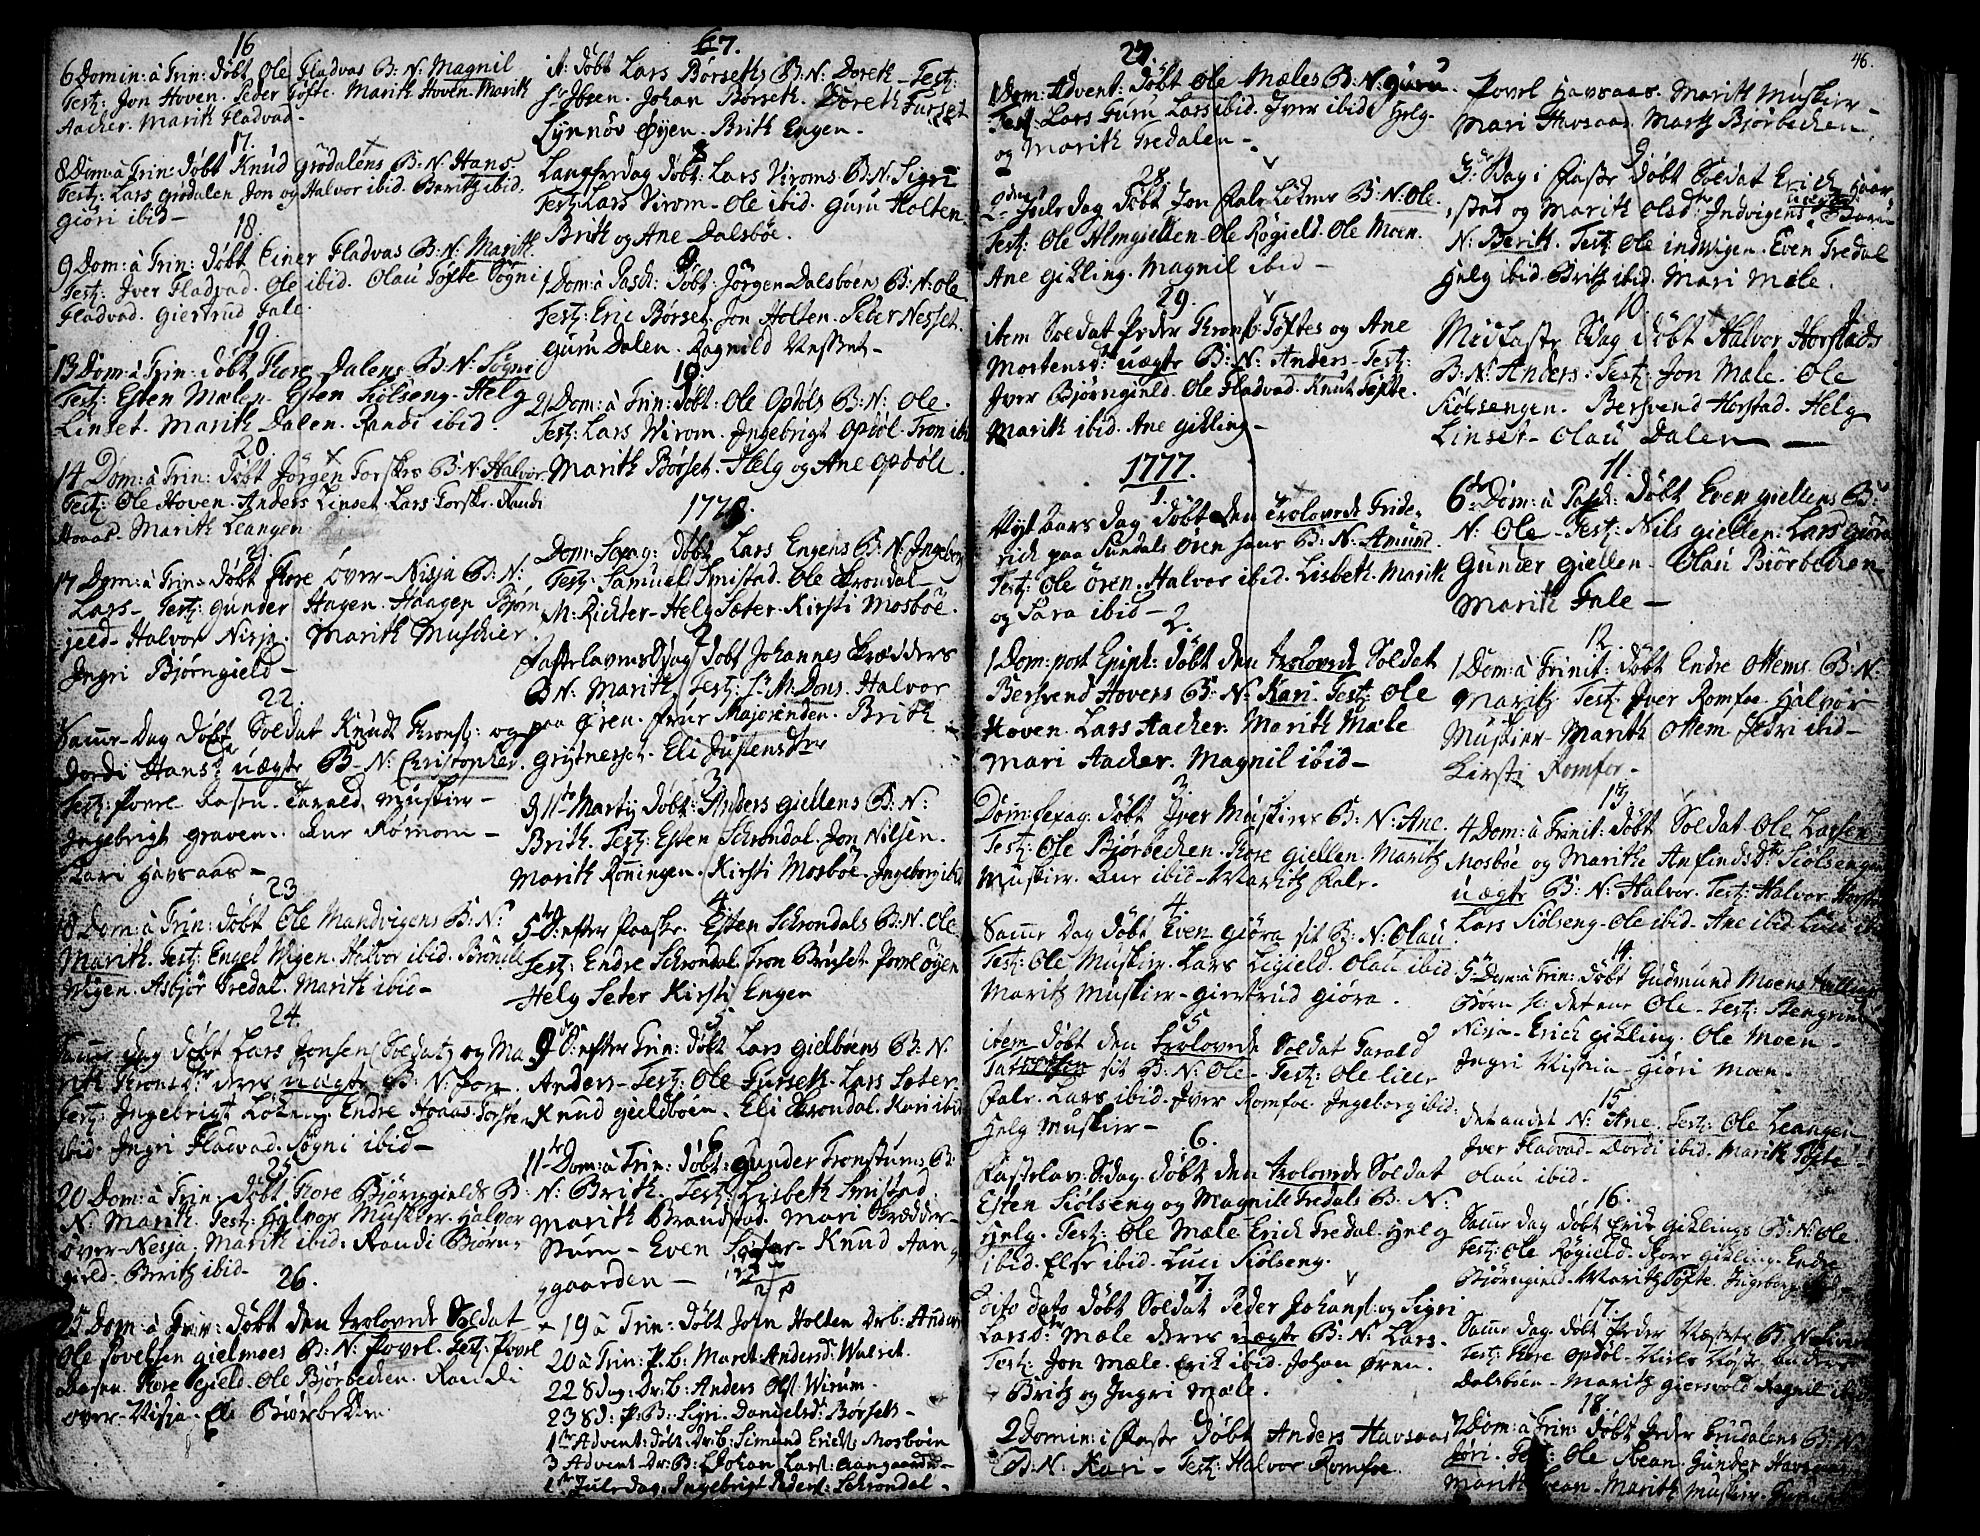 16
6 Domin: à Trin: døbt Ole Fladvas B: N: Magnil
Test: Jon Hoven. Peder Tøfte. Marith Hoven. Marith
Aacher. Marith Fladvad.
17.
8 Dom: à Trin: døbt Knud Grødalens B: N: Hans
Test: Lars Grødalen Jon og Halvor ibid. Berith ibid:
Giøri ibid-
18.
9 Dom: à Trin: døbt Einer Fladvas B: N: Marith.
Test: Iver Fladvad. Ole ibid. Olau Tøfte Søgni
Fladvad. Giertrud Fale.
19.
13 Dom: à Trin: døbt Tore Dalens B: N: Søgni
Test: Esten Mælen. Esten Siølseng. Helg
Linset. Marith Dalen. Randi ibid.
20.
14 Dom: à Trin: døbt Jørgen Torskes B: N: Halvor
Test: Ole Hoven. Anders Linset. Lars Torske. Randi
Hoaas. Marith Leangen
21.
17 Dom: à Trin: døbt Tore Over-Nisja B: N:
Lars- Test: Gunder Hagen. Haagen Biørn
gield- Halvor Nisja. Marith Muschier.
Ingri Biørngield-
22.
Samme Dag døbt Soldat Knudt Thronss: og
Dordi Hansd. uægte B: N: Christopher.
Test: Povel Rasen. Tarald Muskier-
Ingebrigt Graven. Ane Rømoen-
Kari Havsaas-
23.
18 Dom: à Trin: døbt Ole Mandvigens B: N:
Marith. Test: Engel Wigen. Halvor ibid.
Wigen. Asbiør Tredal. Marith ibid-
24.
Samme dag døbt Lars Jonsen (Soldat) og Ma
rith Thronsdtr deres uægte B: N: Jon
Test: Ingebrigt Løkeng. Endre Hoaas. Torsten
ibid. Ingri Fladvad. Søgni ibid-
25.
20 Dom: à Trin: døbt Tore Biørngields B:
N: Marith. Test: Halvor Muskier. Halvor
Over-Nesja. Marith ibid. Randi Biørn
gield. Berith ibid-
26.
25 Dom: à Trin: døbt den trolovede Soldat
Ole Povelsen Gielmoes B: N: Povel. Test: Povel
Rasen. Tore Gield. Ole Biørbechen. Randi
Over-Nisja. Eli Biørbechen
67.
it: døbt Lars Børseths B: N: Doreth - Test:
Hr Ibsen. Johan Børseth. Doreth Furset
Synnøv Øyen. Brith Engen-
8
Langfredag døbt: Lars Viroms. B: N: Sigri
Test: Lars Virom- Ole ibid. Guru Holten
Brith og Ane Dalsbøe.
9
1 Dom: à Pasch: Døbt: Jørgen Dalsbøens B: N: Ole
Test: Eric Børset. Jon Holten. Peter Nesset.
Guru Dalen. Ragnild Nesset-
10.
21 Dom: à Trin: døbt: Ole Opdøls B: N: Ole.
Test: Lars Wirom. Ingebrigt Opdøl. Tron ibid
Marith Børset. Helg og Ane Opdøll.
1778.
Dom: Sexag: døbt Lars Engens B: N: Ingeborg
Test: Samuel Smistad. Ole Skrondal-
M: Richter- Helg Sæter- Kirsti Mosbøe.
2
Fastelavens Sdag døbt Johannes Brædders
B N: Marith, Test: Hr M: Dons. Halvor
paa Øren. Frue Majorenden. Brith
Grytneset. Eli Justensdtr
3
d 11te Martij døbt: Anders Giellens B: N:
Brith. Test: Esten Schrondal. Jon Nilsen.
Marith Rønningen. Kirsti Mosbøe. Ingeborg ibid
4
5te S: efter Paaske. Esten Schrondals B: N: Ole
Test: Endre Schrondal. Tron Brüset. Povel Øyen
Helg Seter Kirsti Engen
5
9de S: efter Trin: døbt Lars Gielbøens B: N.
Anders- Test: Ole Furseth. Lars Sæter-
Knud Gieldbøen. Eli Skrondal. Kari ibid
6
11te Dom: à Trin: døbt: Gunder Tronstuens B:
N: Brith. Test: Lisbeth Smistad
Marith Brandstad. Mari Brædder-
stuen- Even Sæter- Knud Aan
gaarden-
19 à Trin: døbt John Holten Dr b: Anders
20 à Trin: P. b: Maret Andersd: Walset.
22 Sdag: Dr: b: Anders Ols: Wirum.
23 Sd: P: B: Sigri. Danielsd: Børseth-
1te Advent: døbt: Dr: b: Simund Erichs: Mosbøen
3 Advent- Dr: B: Johan Larss: Aangaarden-
1te Juledag: Ingebrigt Peders: Schrondal-
27.
1 Dom: Advent: døbt Ole Mæles B: N: Guru
Test: Lars Furu Lars ibid. Iver ibid Helg-
og Marith Tredalen-
28
2den Juledag døbt Jon Fale-Løkens B: N: Ole.
Test: Ole Almgiellen. Ole Røgield. Ole Moen.
Ane Gikling. Magnil ibid-
29.
item Soldat Peder Throns: Tøftes og Ane
Mortensd: uægte B: N: Anders- Test:
Iver Biørngield. Ole Fladvad. Knut Tøfte.
Marith ibid. Ane Gikling-
1777.
1.
Nyt aars dag døbt den Trolovede Fride-
rich paa Sundals Øren hans B: N: Amund.
Test: Ole Øren. Halvor ibid. Lisbeth. Marith
og Sara ibid-
2.
1 Dom: post Epiph: døbt den trolovede Soldat
Bersvend Hovens B: N: Kari. Test: Ole
Hoven. Lars Aacher. Marith Mæle
Mari Aacher. Magnil ibid-
3.
Dom: Sexag: døbt Iver Muskiers B: N: Ane.
Test: Ole Biørbechen. Tore Giellen. Marith
Muskier. Ane ibid- Marith Fale.
4
Samme Dag døbt Even Giøra sit B: N: Olau
Test: Ole Muskier. Lars Ligield. Olau ibid
Marith Muskier- Giertrud Giøra.
5
item døbt den trolovede Soldat Tarald
sit B: N: Ole- Test: Ole Lille
Fale. Lars ibid. Iver Romfoe. Ingeborg ibid:
Helg Muskier-
6.
Fastelav: Sdag døbt den trolovede Soldat
Esten Siølseng og Magnild Tredals B: N:
Helg. Test: Ole Mæle Erich Tredal. Helg
ibid. Else ibid. Luci Siølseng.
7.
dito dato døbt Soldat Peder Johans: og Sigri
Larsd: Mæle deres uægte B: N: Lars-
Test: Jon Mæle. Erik ibid. Johan Øren.
Brith og Ingri Mæle.
2 Domin: i Faste døbt Anders Havsaas
B: N: Kari- Test: Halvor Romfoe.
46.
Povel Havsaas. Marith Muskier-
Mari Havsaas. Marth Biørbechen.
9
3de Sdag i Faste døbt Soldat Erich Haar
stad og Marith Olsd: Indvigens uægte Barn
N: Berith. Test: Ole Indvigen. Even Tredal
Helg ibid. Brith ibid. Mari Mæle.
10.
Midfaste Sdag døbt Halvor Horstads
B: N: Anders. Test: Jon Mæle. Ole
Siølsengen. Bersvend Horstad. Helg
Linset- Olau Dalen-
11.
6te Dom: à Pasch: døbt Even Giellens B:
N: Ole- Test: Nils Giellen. Lars Giøra
Gunder Giellen- Olau Biørbechen
Marith Fale-
12.
1 Dom: à Trinit: døbt Endre Ottems. B: N:
Marith. Test: Iver Romfoe. Halvor
Muskier- Marith Ottem. Sidri ibid-
Kirsti Romfoe-
13.
4 Dom: à Trinit: døbt Soldat Ole Larsen
Mosbøe og Marithe Anfindsdtr Siølsengen
uægte B: N: Halvor. Test: Halvor Horstad
Lars Siølseng- Ole ibid- Ane ibid Luci ibid
14.
5te Dom: à Trin: døbt Gudmund Moens Tvilling
Børn sc: det ene Ole- Test:
Nisja- Erich Gikling. Ole Moen-
Ingri Nisja- Giøri Moen-
15.
det andet N: Ane. Test: Ole Leangen
Iver Fladvad- Dordi ibid. Marith Tøfte-
Olau ibid.
16.
Samme dag døbt Erik Giklings B: N: Ole
Test: Ole Røgield. Tore Gikling. Endre
Biørngield. Marith Tøfte. Ingeborg ibid-
17.
Samme dag døbt Peder B: N:
Test: Tore Opdøl- Anders
Dalsbøen- Marith Giersvold Ragnil ibid
18.
7 Dom: à Trin: døbt Peder Grødalens B: N:
Test: Ole Svean. Gunder Havsaas
Marith Svean- Marith Muskier.